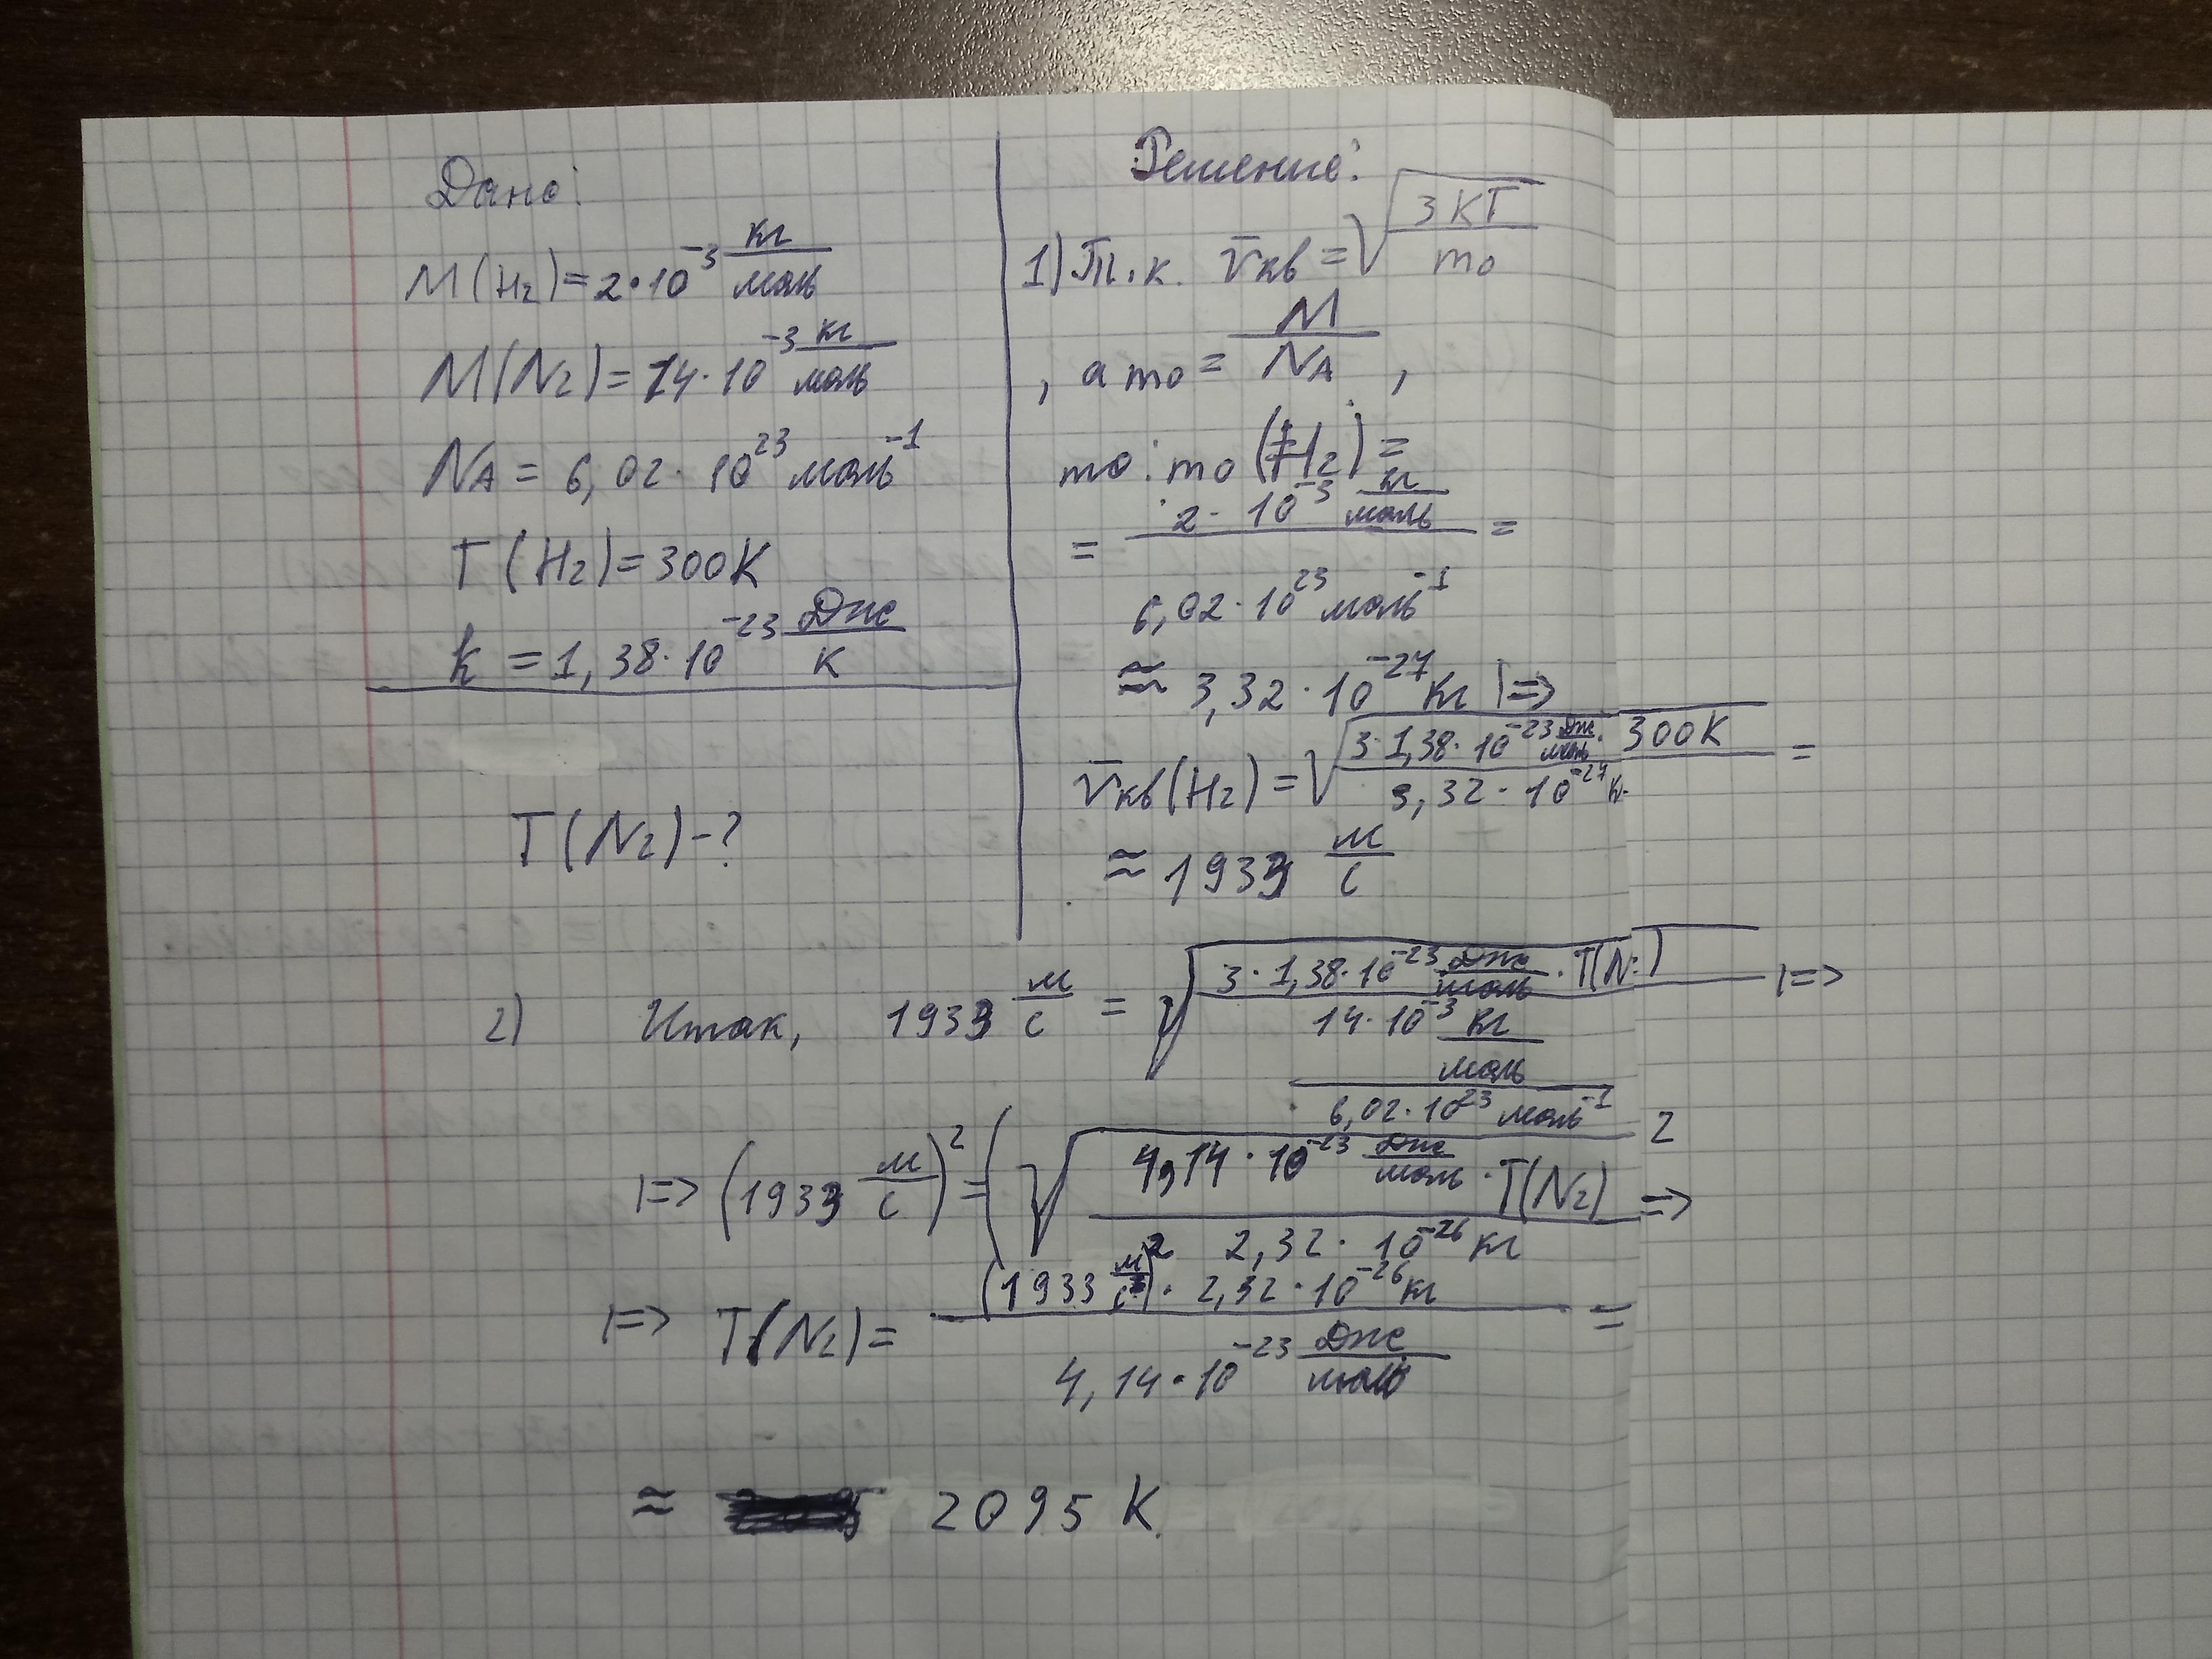 Дано:
M(H₂)=2•10⁻³ кг/моль
M(N₂)=14·10⁻³ кг/моль
NA = 6,02·10²³ моль⁻¹
T(H₂)=300K
k =1,38·10⁻²³ Дж/К
T(N₂)-?
Решение:
1) Т.к. v̄кв=√(3KT/m₀)
, а m₀ = M/NA ,
m₀: m₀(H₂)=
= 2·10⁻³ кг/моль / 6,02·10²³ моль⁻¹ =
≈ 3,32·10⁻²⁷ кг |=>
v̄кв(H₂)=√(3·1,38·10⁻²³ Дж/моль · 300K / 3,32·10⁻²⁷ кг) =
≈ 1933 м/с
2) Итак, 1933 м/с = √(3·1,38·10⁻²³ Дж/моль · T(N₂) / (14·10⁻³ кг/моль / 6,02·10²³ моль⁻¹)) |=>
|=> (1933 м/с)² = (√(4,14·10⁻²³ Дж/моль · T(N₂) / 2,32·10⁻²⁶ кг))² =>
|=> T(N₂)= (1933 м/с)² · 2,32·10⁻²⁶ кг / 4,14·10⁻²³ Дж/моль =
≈ 2095 K